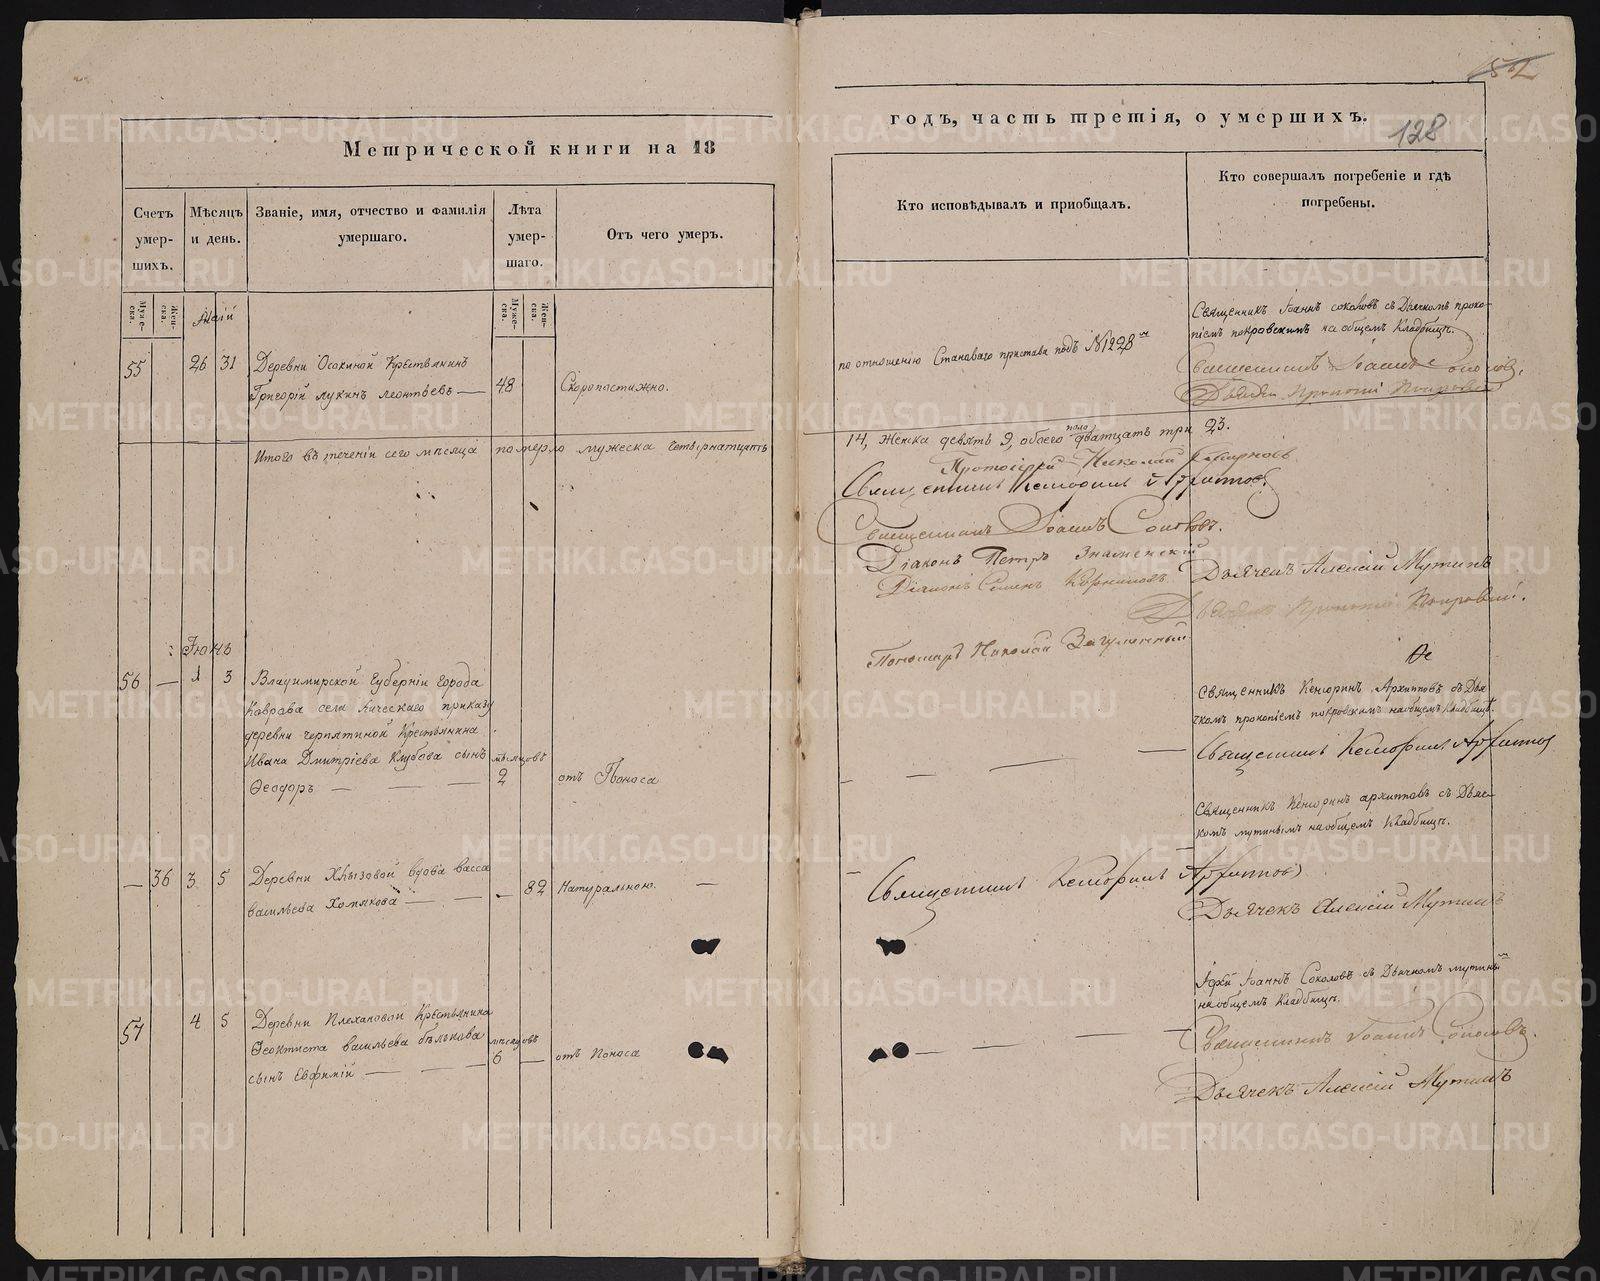 Метрической книги на 18
Счетъ умершихъ.
Мѣсяцъ и день.
Званіе, имя, отчество и фамилія умершаго.
Лѣта умершаго.
Отъ чего умеръ.
Муже-
ска.
Жен-
ска.
Муже-
ска.
Жен-
ска.
Маій
55 26 31 Деревни Осокиной Крестьянинъ
Григорій лукинъ леонтьевъ — 48 Скоропостижно.
Итого въ теченіи сего мѣсяца померло мужеска четырнатцать
Іюнь
56 — 1 3 Владимирской Губерніи города
Коврова села приказу
деревни Крестьянина
Ивана Дмитріева Клубова сынъ мѣсяцовъ
Ѳеодоръ — — — 2 отъ Поноса
— 36 3 5 Деревни Хлызовой вдова васса
васильева Хомякова — — - 82 Натурально. —
57 4 5 Деревни Плехановой Крестьянина
Ѳеоктиста васильева бѣлькова мѣсяцовъ
сынъ Евфимій — — — 6 — отъ Поноса
152
годъ, часть третія, о умершихъ.
128
Кто исповѣдывалъ и приобщалъ.
Кто совершалъ погребеніе и гдѣ погребены.
Священникъ Іоаннъ соколовъ съ Дьячкомъ проко-
піемъ покровскимъ на общемъ Кладбищѣ.
по отношенію Становаго пристава подъ №1228
Священникъ Іоаннъ Соколовъ.
Дьячекъ Прокопій Покровскій
14, Женска девять 9, обоего пола дватцать три 23.
Протоіерей Николай Смирновъ
Священникъ Кенсоринъ Архиповъ
Священникъ Іоаннъ Соколовъ.
Діаконъ Петръ Знаменскій
Дьячекъ Алексій Мутинъ
Діаконъ Семенъ Корниловъ.
Дьячекъ Прокопій Покровскій.
Пономарь Николай Загуменный
Священникъ Кенсоринъ Архиповъ съ Дья-
чкомъ прокопіемъ покровскимъ на общемъ Кладбищѣ.
Священникъ Кенсоринъ Архиповъ
Священникъ Кенсоринъ архиповъ съ Дьяч-
комъ мутинымъ на общемъ Кладбищѣ.
Священникъ Кенсоринъ Архиповъ
Дьячекъ Алексій Мутинъ
Іоаннъ Соколовъ съ Дьячкомъ мутинымъ
на общемъ Кладбищѣ.
Священникъ Іоаннъ Соколовъ.
Дьячекъ Алексій Мутинъ
METRIKI.GASO-URAL.RU